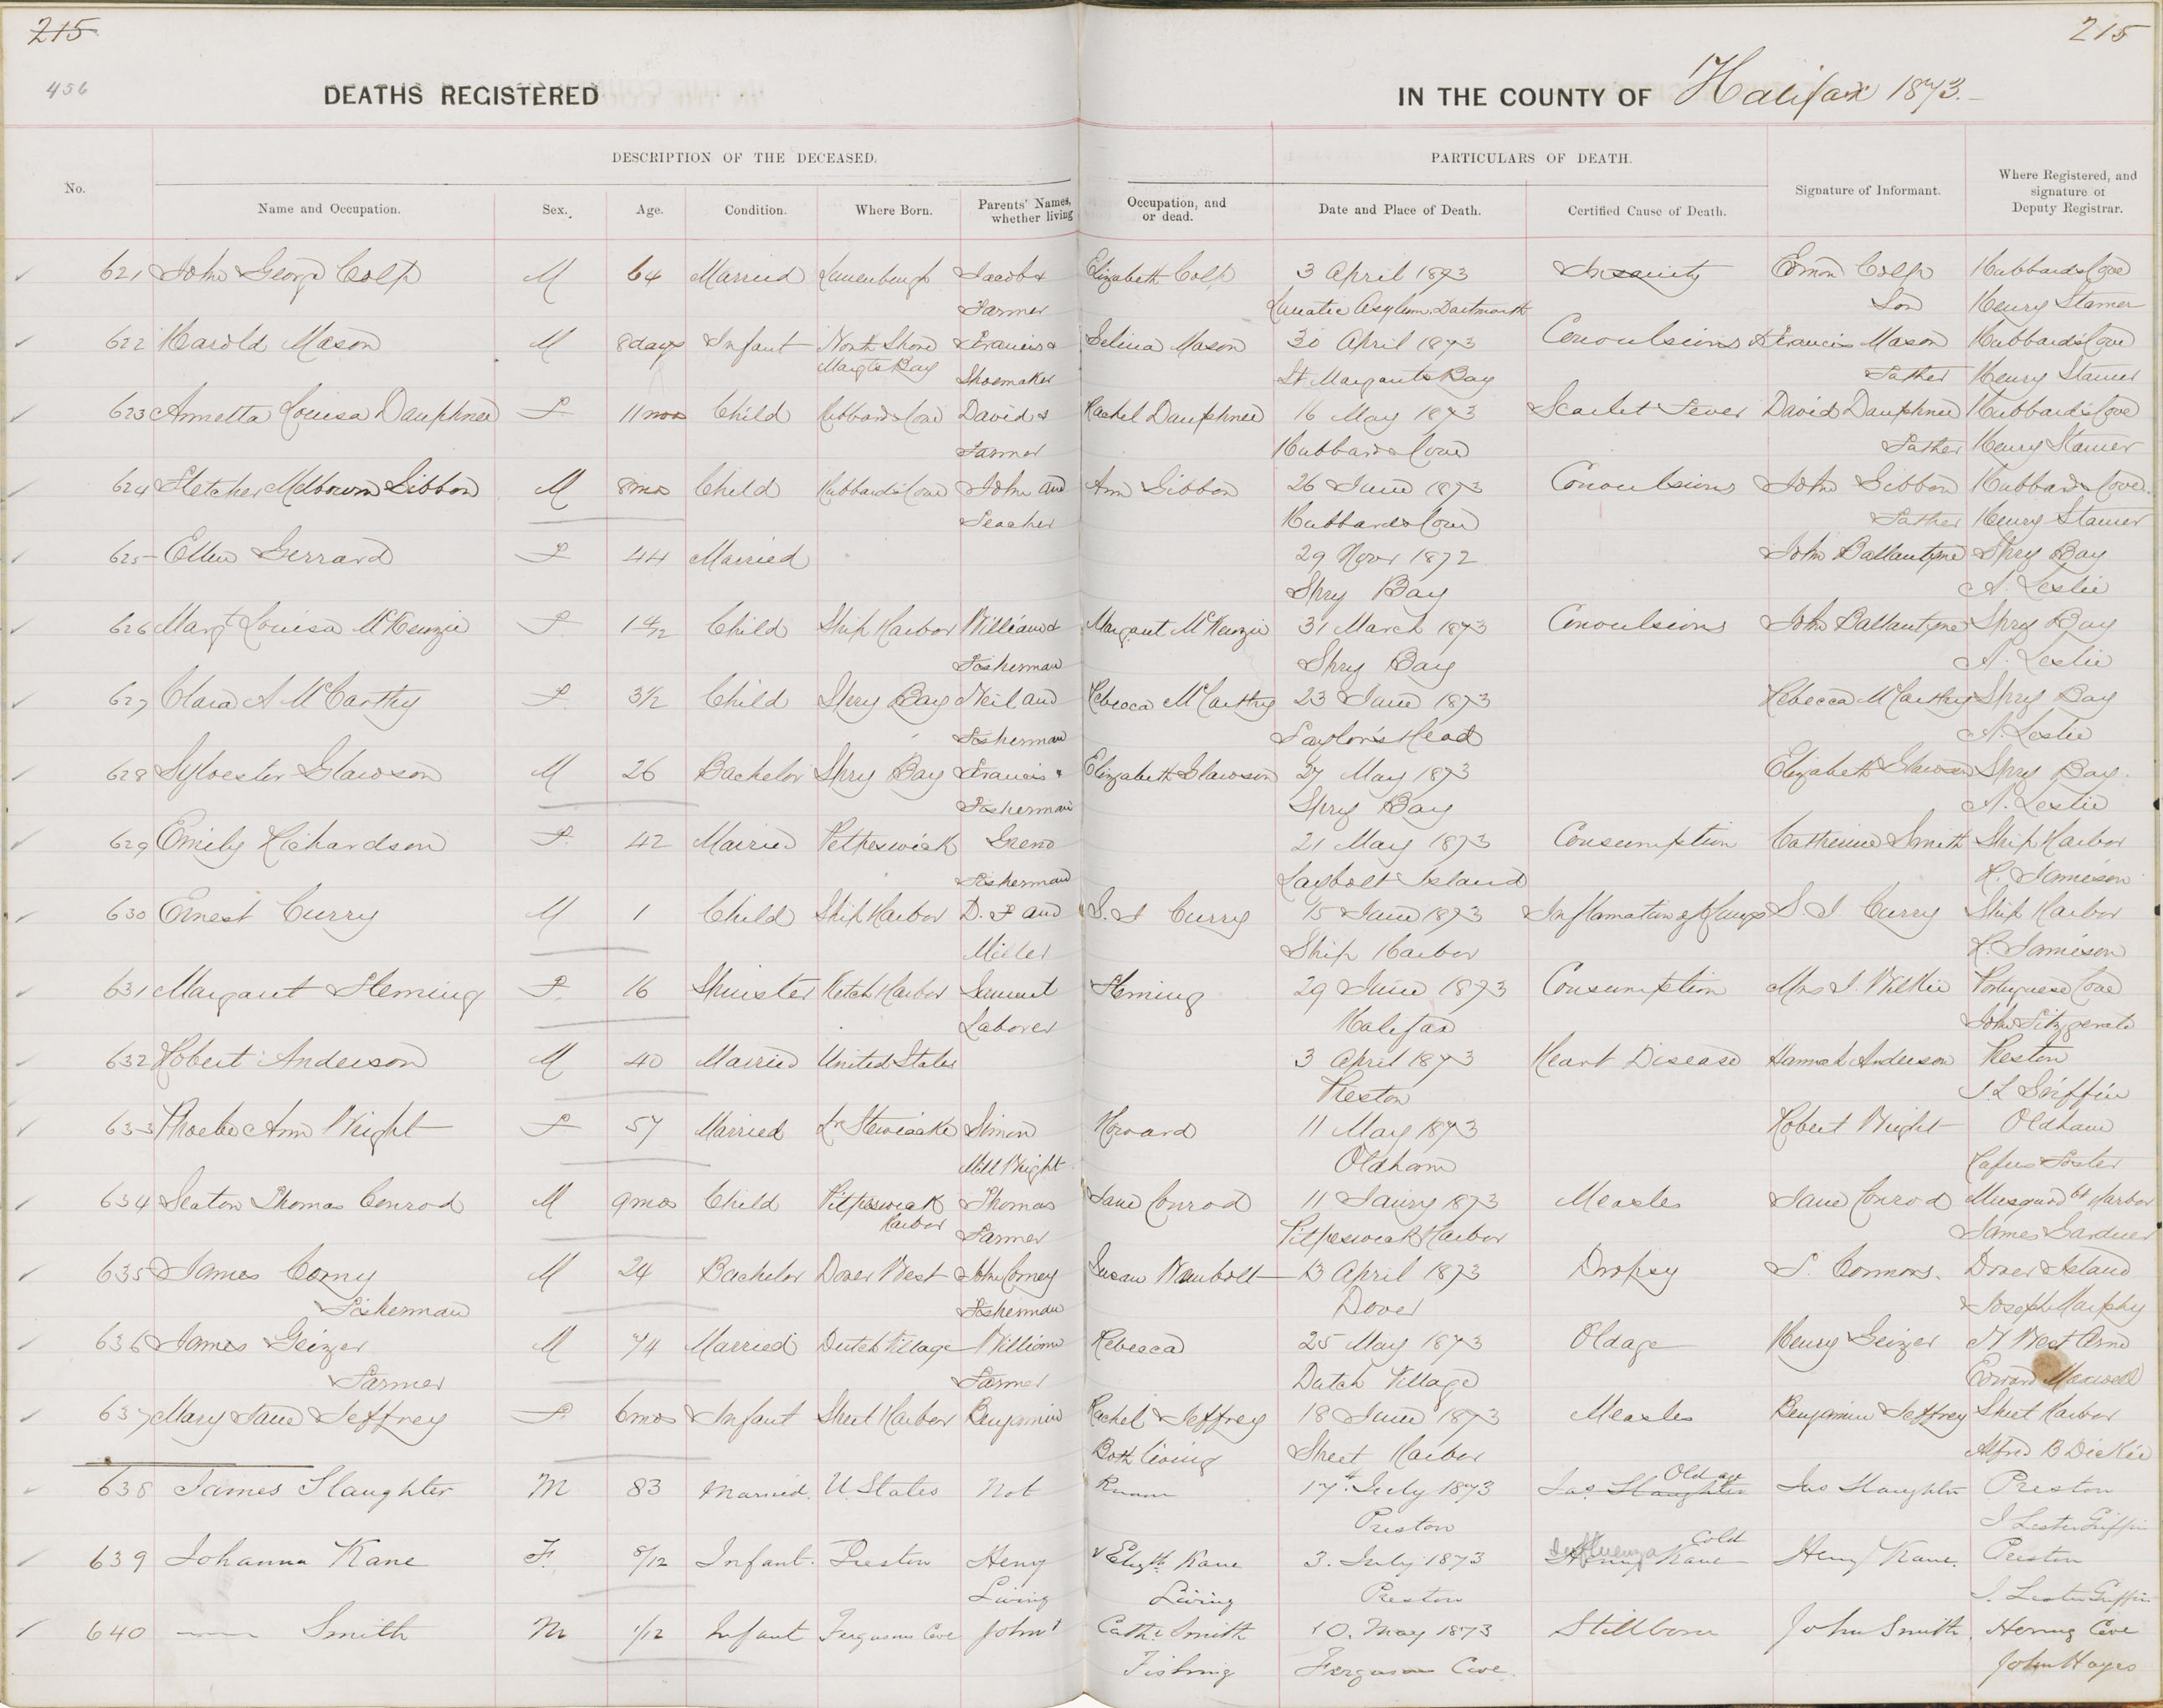 215 215
456 DEATHS REGISTERED IN THE COUNTY OF Halifax 1873.
DESCRIPTION OF THE DECEASED. PARTICULARS OF DEATH.
No. Name and Occupation. Sex. Age. Condition. Where Born. Parents' Names, whether living Occupation, and or dead. Date and Place of Death. Certified Cause of Death. Signature of Informant. Where Registered, and signature of Deputy Registrar.
621 John George Colp M 64 Married Lunenburgh Jacob & Elizabeth Colp 3 April 1873 Insanity Edmon Colp Hubbards Cove
Farmer Lunatic Asylum Dartmouth Son Henry Stamer
622 Harold Mason M 8 days Infant North Shore Francis & Selina Mason 30 April 1873 Convulsions Francis Mason Hubbards Cove
Margts Bay Shoemaker St Margarets Bay Father Henry Stamer
623 Annetta Louisa Dauphnee F 11 mos Child Hubbards Cove David & Rachel Dauphnee 16 May 1873 Scarlet Fever David Dauphnee Hubbards Cove
Farmer Hubbards Cove Father Henry Stamer
624 Fletcher Melbourn Gibbon M 8 mos Child Hubbards Cove John and Ann Gibbon 26 June 1873 Convulsions John Gibbon Hubbards Cove.
Teacher Hubbards Cove Father Henry Stamer
625 Ellen Gerrard F 44 Married 29 Novr 1872 John Ballantyne Spry Bay
Spry Bay A. Leslie
626 Margt Louisa McKenzie F 1 4/12 Child Ship Harbor William & Margaret McKenzie 31 March 1873 Convulsions John Ballantyne Spry Bay
Fisherman Spry Bay A. Leslie
627 Clara A McCarthy F 3½ Child Spry Bay Neil and Rebecca McCarthy 23 June 1873 Rebecca McCarthy Spry Bay
Fisherman Taylor's Head A. Leslie
628 Sylvester Glawson M 26 Bachelor Spry Bay Francis & Elizabeth Glawson 27 May 1873 Elizabeth Glawson Spry Bay.
Fisherman Spry Bay A. Leslie
629 Emily Richardson F 42 Married Petpeswick Greno 21 May 1873 Consumption Catherine Smith Ship Harbor
Fisherman Laybolt Island R. Jamieson
630 Ernest Curry M 1 Child Ship Harbor D. F and S. I Curry 15 June 1873 Inflamation of Lungs S. I. Curry Ship Harbor
Miller Ship Harbor R. Jamieson
631 Margaret Fleming F 16 Spinister Ketch Harbor Fleming 29 June 1873 Consumption Mrs J. Wilkie Portuguese Cove
Laborer Halifax John Fitzgerald
632 Robert Anderson M 40 Married United States 3 April 1873 Heart Disease Hannah Anderson Preston
Preston J. L Griffin
633 Phoebe Ann Wright F 57 Married Lr Stewiacke Simon Howard 11 May 1873 Robert Wright Oldham
Mill Wright Oldham Rufus Foster
634 Seaton Thomas Conrod M 9 mos Child Petpeswick Thomas Jane Conrod 11 Jany 1873 Measles Jane Conrod Musquod bt Harbor
Harbor Farmer Petpeswick Harbor James Gardner
635 James Corny M 24 Bachelor Dover West John Corney Susan Wambolt 13 April 1873 Dropsy S. Connors. Dover Island
Fisherman Fisherman Dover Joseph Murphy
636 James Geizer M 74 Married Dutch Village William Rebecca 25 May 1873 Old age Henry Geizer N West Arm
Farmer Farmer Dutch Village Edward Maxwell
637 Mary Jane Jeffrey F 6 mos Infant Sheet Harbor Benjamin Rachel Jeffrey 18 June 1873 Measles Benjamin Jeffrey Sheet Harbor
Both living Sheet Harbor Alfred B Dickie
638 James Slaughter M 83 Married. U. States Not Known 17 July 1873 Jas. Slaughter Old age Jas Slaughter Preston
Preston J Lester Griffin
639 Johanna Kane F. 8/12 Infant. Preston Heny & Elizth Kane 3. July 1873 Henry Kane Influenza Cold Heny Kane. Preston
Living Living Preston J. Lester Griffin
640 —— Smith M 1/12 Infant Fergusons Cove John & Cathe Smith 10. May 1873 Stillborn John Smith. Herring Cove
Fishing Fergusons Cove. John Hayes